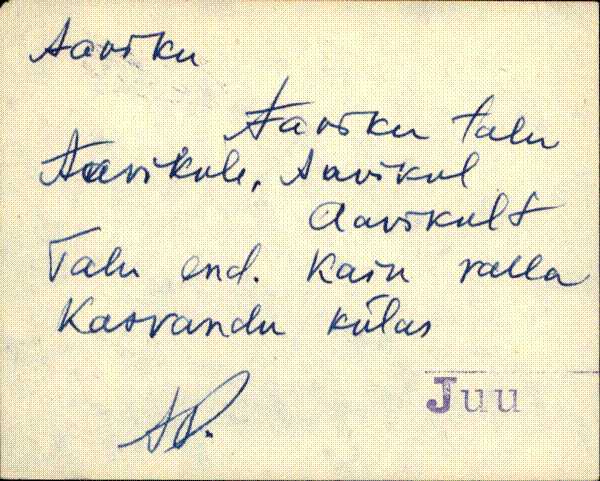 Aaviku
Aaviku talu
Aavikule, Aavikul
Aavikult
Talu end. Kaiu valla
Kasvandu külas
AP.
Juu